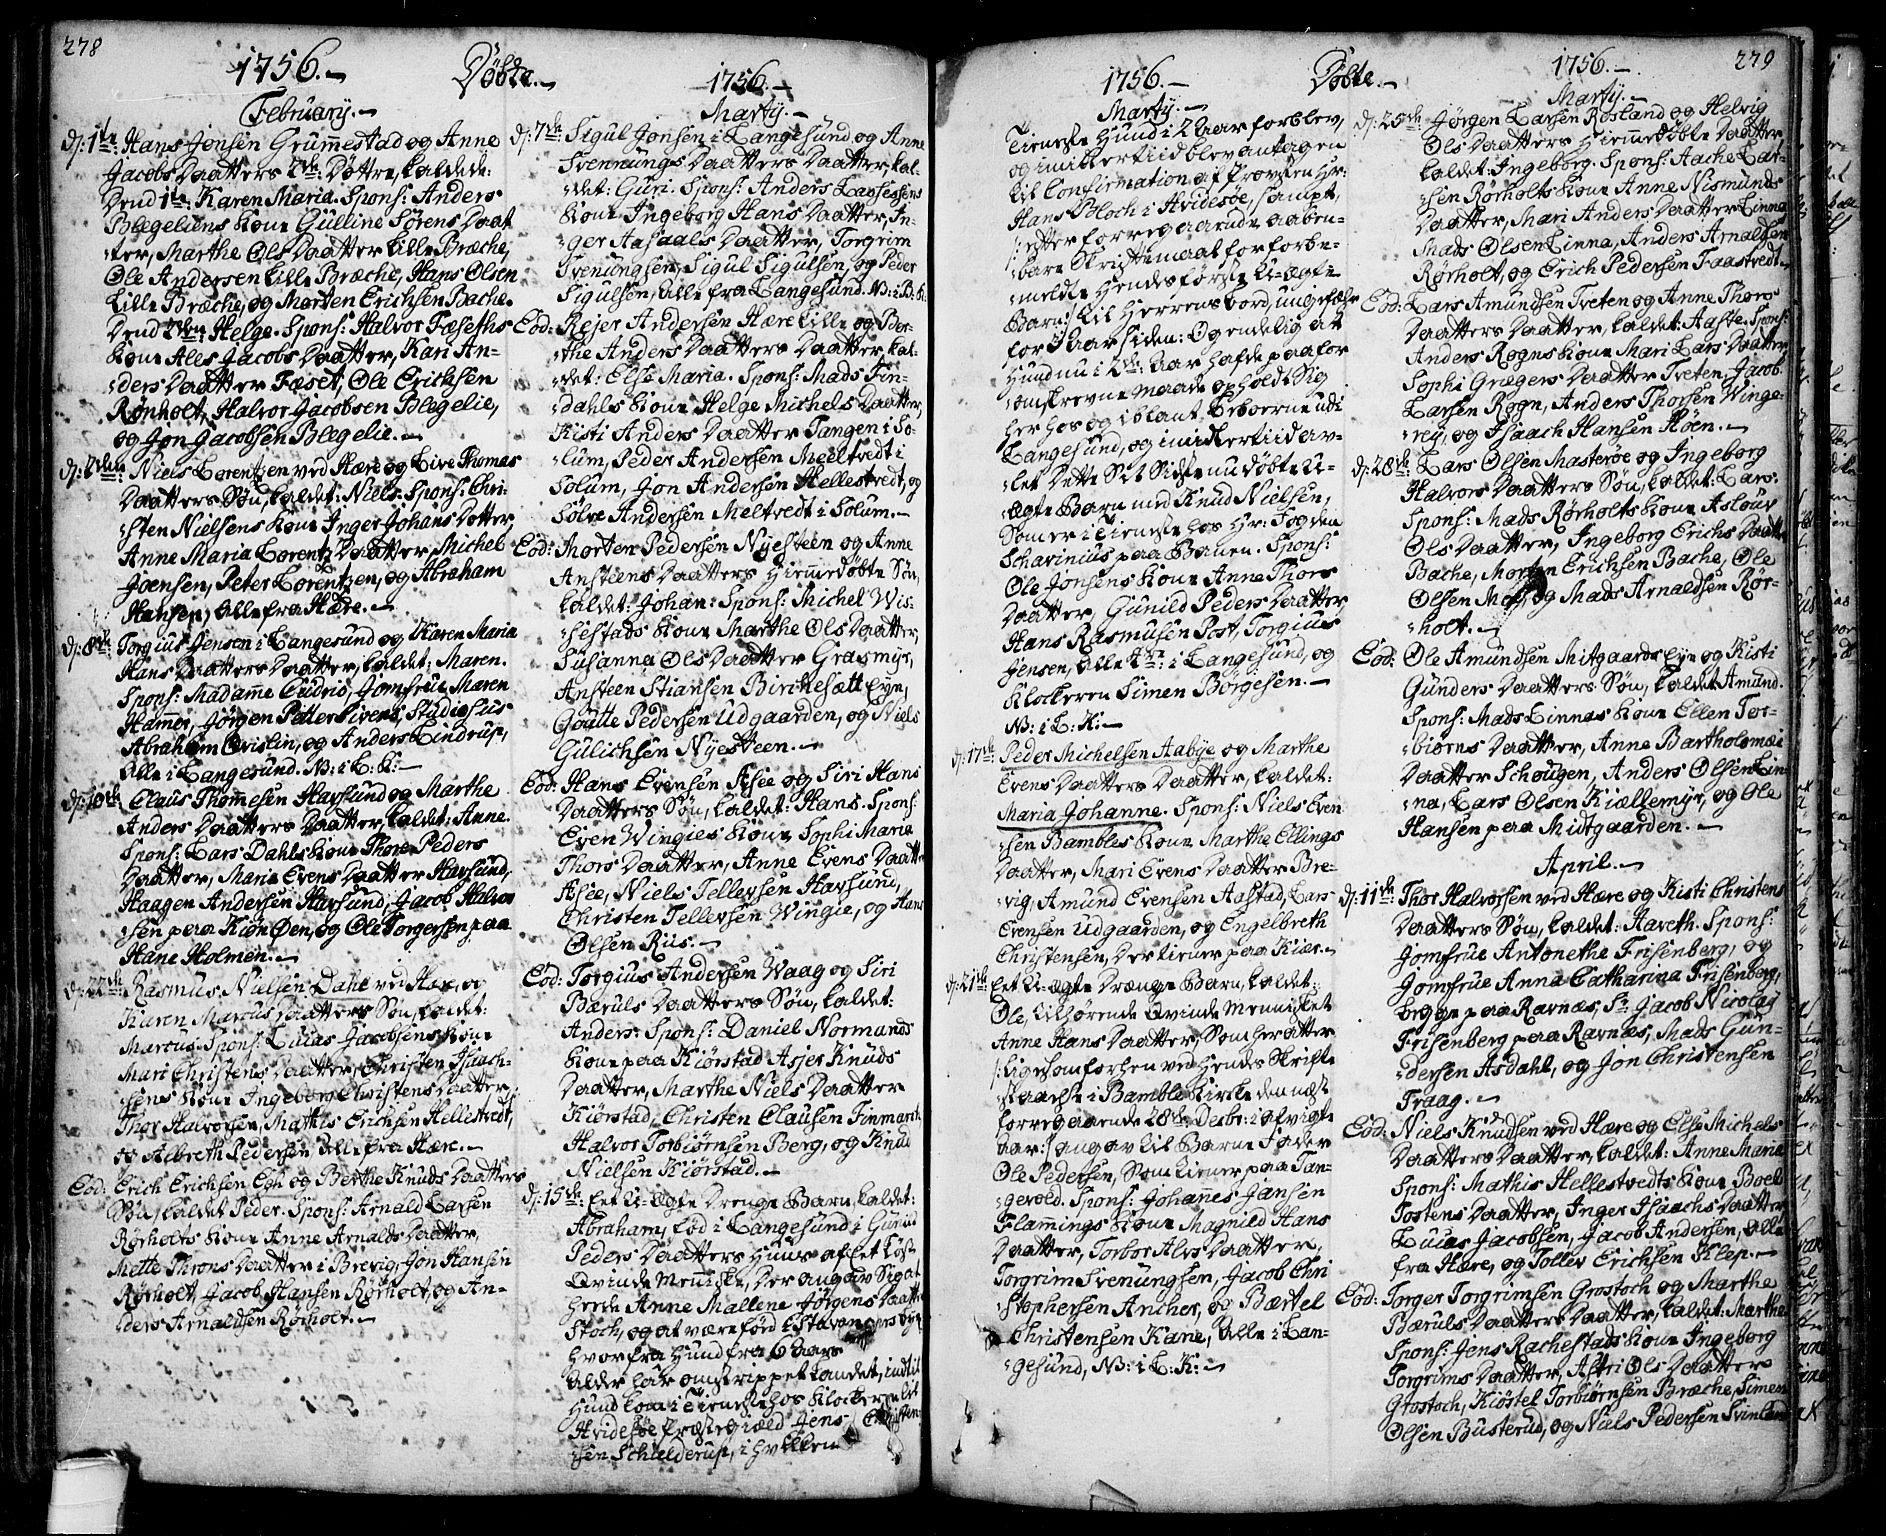 278
1756.-
Döbte.-
1756.-
February.-
d: 1te: Hans Jensen Grum̃estad og Anne
Jacobs Daatters 2de: Döttre, kaldede:
Dend 1te: Karen Maria. Spons: Anders
Blegeliens Kone Gulline Sörens Daat
ter, Marthe Ols Daatter Lille Bræche,
Ole Andersen Lille Bræche, Hans Olsen
Lille Bræche, og Morten Erichsen Bache.
Dend 2den: Helge. Spons: Halvor Fæseths
Kone Ales Jacobs Daatter, Kari An-
:ders Daatter Fæset, Ole Erichsen
Rönholt, Halvor Jacobsen Blegelie,
og Jon Jacobsen Blegelie.-
d: 7den: Niels Lorentzen ved Hære og Live Thomas
Daatters Sön, kaldet: Niels. Spons: Chri-
:sten Nielsens Kone Inger Johans Dotter,
Anne Maria Lorentz Daatter, Michel
Joensen, Peter Lorentzen, og Abraham
Hansen, alle fra Hære.-
d: 8de: Torgius Jensen i Langesund og Karen Maria
Hans Daatters Daatter, kaldet: Maren.
Spons: Madam̃e Cudrio, Jomfrue Maren
Hamer, Jörgen Petter Sivers, Studiosus
Abraham Qvislin, og Anders Lindrup,
alle i Langesund. NB: i L: K:-
d: 10de: Claus Thom̃esen Havsund og Marthe
Anders Daatters Daatter, kaldet: Anne.
Spons: Lars Dahls Kone Thore Peders
Daatter, Maria Evens Daatter Havsund,
Haagen Andersen Havsund, Jacob Halvor
:sen paa Kiön Öen, og Ole Torgersen paa
Hane Holmen.-
d: 22de: Rasmus Nielsen Dahl ved Hære, og
Karen Marcus Daatters Sön, kaldet:
Marcus. Spons: Lucas Jacobsens Kone
Mari Christens Daatter, Christen Isaach-
:sens Kone Ingeborg Christens Daatter,
Thor Halvorsen, Mathis Erichsen Hellestvedt,
og Albreth Pedersen alle fra Hære.-
Eod: Erich Erichsen Egh og Berthe Knuds Daatters
Sön, kaldet Peder. Spons: Arnald Larsen
Rörholts Kone Anne Arnalds Daatter,
Mette Throns Daatter i Brevig, Jon Hansen
Rörholt, Jacob Hansen Rörholt, og An-
:ders Arnaldsen Rörholt.-
Marty.-
d: 7de: Sigul Jonsen i Langesund og Anne
Svennungs Daatters Daatter, kal-
:det: Guri. Spons: Anders Lassesens
Kone Ingeborg Hans Daatter, In-
:ger Aasaals Daatter, Torgrim
Svenungsen, Sigul Sigulsen, og Peder
Sigulsen, alle fra Langesund. NB: i B: K:
Eod: Rejer Andersen Hære Lille og Ber-
:the Anders Daatters Daatter, kal-
:det: Else Maria. Spons: Mads Fin-
:dahls Kone Helge Michels Daatter,
Kisti Anders Daatter Tangen i So-
:lum, Peder Andersen Meeltvedt i
Solum, Jon Andersen Hellestvedt, og
Sölve Andersen Meltvedt i Solum.-
Eod: Morten Pedersen Nyesteen og Anne
Ansteens Daatters Hiem̃edöbte Sön,
kaldet: Johan: Spons: Michel Wis-
:sestads Kone Marthe Ols Daatter,
Susanna Ols Daatter Grasmyr,
Ansteen Stiansen Birchesætt Eyn,
Goutte Pedersen Udgaarden, og Niels
Gulichsen Nyesteen.-
Eod: Hans Evensen Asee og Siri Hans
Daatters Sön, kaldet: Hans. Spons:
Even Wingies Kone Sophi Maria
Thors Daatter, Anne Evens Daatter
Asee, Niels Tellevsen Havsund,
Christen Tellevsen Wingie, og Hans
Olsen Riis.-
Eod: Torgius Andersen Waag og Siri
Bæruls Daatters Sön, kaldet:
Anders. Spons: Daniel Normands
Kone paa Kiörstad Asjer Knuds
Daatter, Marthe Niels Daatter
Kiörstad, Christen Clausen Finmarch,
Halvor Torbiörnsen Berg, og Knud
Nielsen Kiörstad.-
d: 15de: Eet U-ægte Drenge Barn, kaldet:
Abraham, föd i Langesund i Gunild
Peders Daatters Huus af Eet löst
Qvinde Men̄iske, Der angav Sig at
heede Anne Mallene Jörgens Daatter
Stoch, og at være föd i Stavangers bye,
hvorfra Hund fra 6 Aars
Alder har omstrippet Landet, indtil
Hund kom i Tieneste hos Klocheren til
Hvidesöe Præstegiæld Jens Christen-
:sen Schielderup, i hvilken
279
1756.-
Döbte.-
1756.-
Marty.-
Tieneste Hund i 2 Aar forblev,
og imidlertiid blev antagen
til Confirmation af Provsten Hr:
Hans Bloch i Hvidesöe, sampt,
/: efter forregaaende aaben-
:bare Skriftemaal for forbe-
:meldte Hendes förste U-ægte
Barn :/ til Herrens bord, ungefæhr
for 3 Aar siden: Og endelig at
Hund nu i 2de: Aar hafde paa for
:omskrevne Maade opholdt Sig
her hos og iblant Beboerne udi
Langesund, og imidlertiid av-
:let Dette Sit Sidste nu döbte U-
:ægte Barn med Knud Nielsen,
Som er i Tieneste hos Hr: Fogden
Schavinius paa Banen. Spons:
Ole Jonsens Kone Anne Thors
Daatter, Gunild Peders Daatter,
Hans Rasmusen Post, Torgius
Jensen, alle 4re: i Langesund, og
Klockeren Simen Börgesen.-
NB: i L: K:-
d: 17de: Peder Michelsen Aabye og Marthe
Evens Daatters Daatter, kaldet:
Maria Johanne. Spons: Niels Even
:sen Bambles Kone Marthe Ellings
Daatter, Mari Evens Daatter Bre-
:vig, Amund Evensen Aastad, Lars
Evensen Udgaarden, og Engelbreth
Christensen, Der tiener paa Kiær.-
d: 21de: Eet U-ægte Drænge Barn, kaldet:
Ole, tilhörende Qvinde Men̄isket
Anne Hans Daatter, Som her atter
/: ligesom forhen ved Hendes Skrifte
:maal i Bamble Kirke den næst
forregaaende 28de: Decbr: i afvigte
Aar :/ angav til Barne Fader
Ole Pedersen, Som tiener paa Tan-
:gevold. Spons: Johan̄es Jansen
Flam̃ings Kone Magnild Hans
Daatter, Torbor Alvs Daatter,
Torgrim Svenungsen, Jacob Chri
:stophersen Ancher, og Bærtel
Christensen Kane, alle i Lan-
:gesund, NB: i L: K:-
Marty.-
d: 25de: Jörgen Larsen Rosland og Helvig
Ols Daatters Hiem̃edöbte Daatter,
kaldet: Ingeborg. Spons: Aache Lar-
:sen Rörholts Kone Anne Nismunds
Daatter, Mari Anders Daatter Linna,
Mads Olsen Linna, Anders Arnaldsen
Rörholt, og Erich Pedersen Faastvedt.-
Eod: Lars Amundsen Tveten og Anne Thors
Daatters Daatter, kaldet: Aaste. Spons:
Anders Rögns Kone Mari Lars Daatter,
Sophi Grægers Daatter Tveten, Jacob
Larsen Rögn, Anders Thorsen Winge-
:rej, og Isaach Hansen Höen.-
d: 28de: Lars Olsen Masteröe og Ingeborg
Halvors Daatters Sön, kaldet: Lars.
Spons: Mads Rörholts Kone Aslouv
Ols Daatter, Ingeborg Erichs Daatter
Bache, Morten Erichsen Bache, Ole
Olsen Moe, og Mads Arnaldsen Rör-
:holt.-
Eod: Ole Amundsen Mitgaards Eye og Kisti
Gunders Daatters Sön, kaldet Amund.
Spons: Mads Linnas Kone Ellen Tor-
:biörns Daatter, Anne Bartholomæi
Daatter Schougen, Anders Olsen Lin-
:na, Lars Olsen Kiællemyr, og Ole
Hansen paa Midtgaarden.-
April.-
d: 11te: Thor Halvorsen ved Hære og Kisti Christens
Daatters Sön, kaldet: Hareth. Spons:
Jomfrue Antonethe Frisenberg, og
Jomfrue Anna Catharina Frisenberg,
begge paa Ravnæs, Sr: Jacob Nicolay
Frisenberg paa Ravnæs, Mads Gun-
:dersen Asdahl, og Jon Christensen
Traag.-
Eod: Niels Knudsen ved Hære og Else Michels
Daatters Daatter, kaldet: Anne Maria.
Spons: Mathis Hellestvedts Kone Boel
Tostens Daatter, Inger Isaachs Daatter,
Lucas Jacobsen, Jacob Andersen, alle
fra Hære, og Tollev Erichsen Klep.-
Eod: Torger Torgrimsen Grostoch og Marthe
Bæruls Daatters Daatter, kaldet: Marthe.
Spons: Jens Rachestads Kone Ingeborg
Torgrims Daatter, Astri Ols Daatter
Grostoch, Kiöstel Torbiörnsen Bræche, Simen
Olsen Busterud, og Niels Pedersen Svinland.